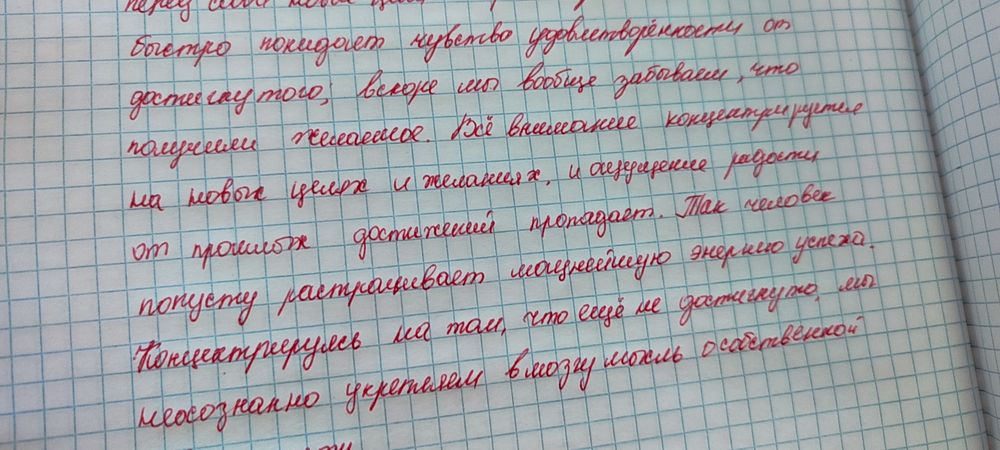 перед собой новые
быстро покидает чувство удовлетворённости от
достигнутого, вскоре мы вообще забываем, что
получили желаемое. Всё внимание концентрируется
на новых целях и желаниях, и ощущение радости
от прошлых достижений пропадает. Так человек
попусту растрачивает мощнейшую энергию успеха.
Концентрируясь на том, что ещё не достигнуто, мы
неосознанно укрепляем в мозгу мысль о собственной